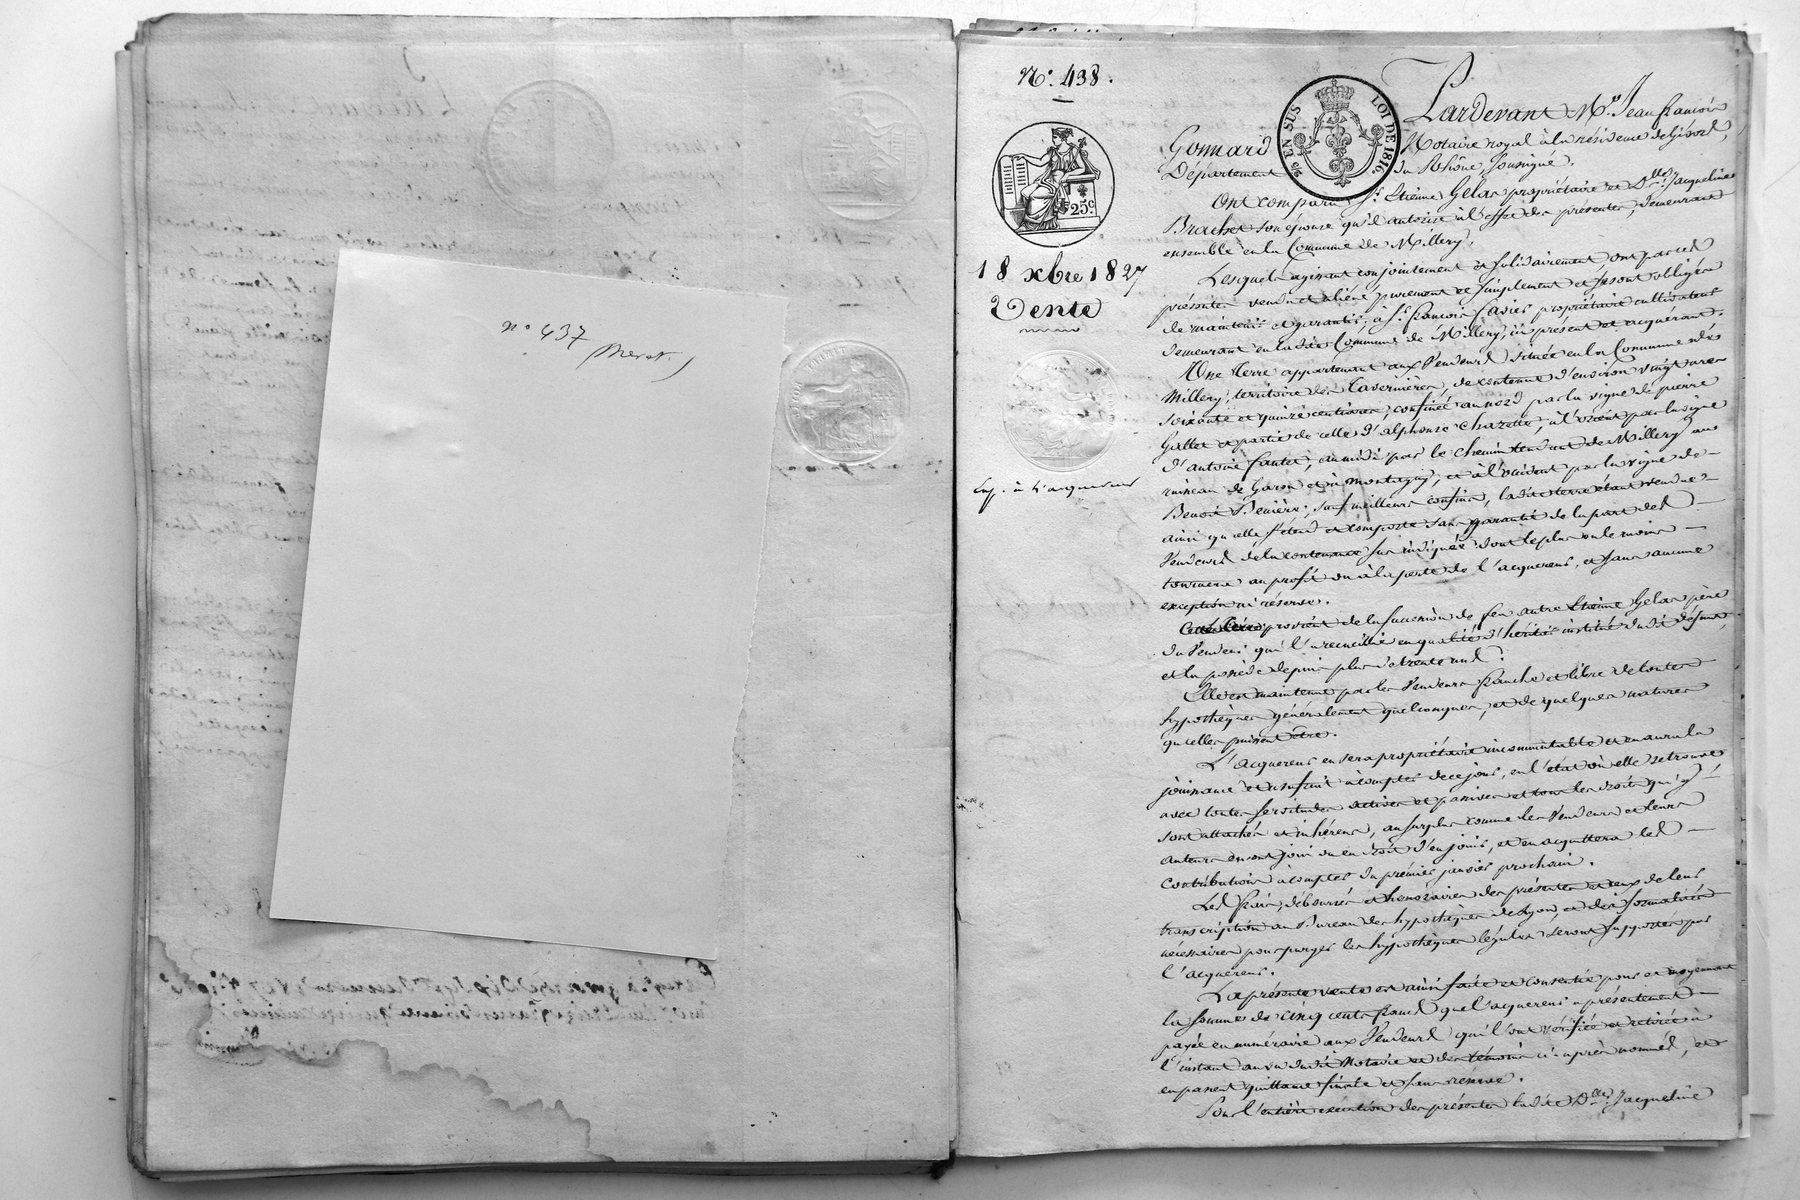 n.° 437
N.° 438.
2/5 EN SUS
LOI DE 1816
25.c
18 xbre 1827
Vente
Exp. à l'acquereur
Pardevant M.e Jean françois
Gonnard Notaire royal à la résidence de Givors,
Département du Rhône, soussigné.
Ont comparu S.r Etienne Gelas propriétaire et D.lle Jacqueline
Brachet son épouse qu'il autorise à l'effet des présentes, demeurant
ensemble en la Commune de Millery.
Lesquels agissant conjointement et solidairement ont par ces
présentes vendu et aliéné purement et simplement et se sont obligés
de maintenir et garantir, à S.r françois propriétaire cultivateur
demeurant en la dite Commune de Millery, ici présent et acquérant.
Une terre appartenant aux Vendeurs située en la Commune dudit
Millery, territoire des Tavernières, de contenue d'environ vingt ares
soixante et quinze centiares, confinée au nord par la vigne de pierre
Gallet et partie de celle d'alphonse Chazette, à l'orient par la vigne
d'antoine, au midi par le chemin tendant de Millery au
ruisseau de Garon et à montagny, et à l'occident par la vigne de
Benoit, sauf meilleurs confins, la dite terre étant vendue
ainsi qu'elle s'étend et comporte sans garantie de la part des
Vendeurs de la contenance sus indiquée dont le plus ou le moins
tournera au profit ou à la perte de l'acquereur, et sans aucune
exception ni réserve.
Cette terre provient de la succession de feu autre Etienne Gelas père
du Vendeur qui l'a recueillie en qualité d'héritier institué du dit défunt,
et la possède depuis plus de trente ans.
Elle est maintenue par les Vendeurs franche et libre de toutes
hypothèques généralement quelconques, et de quelques natures
qu'elles puissent être.
L'acquereur en sera propriétaire incommutable et en aura la
jouissance et usufruit à compter de ce jour, en l'état où elle se trouve
avec toutes servitudes actives et passives et tous les droits qui y
sont attachés et inhérens, au surplus comme les Vendeurs et leurs
auteurs en ont joui ou eu droit d'en jouir, et en acquittera les
contributions à compter du premier janvier prochain.
Les frais, déboursés et honoraires des présentes et ceux de leur
transcription au Bureau des hypothèques de Lyon, et des formalités
nécessaires pour purger les hypothèques légales seront supportés par
l'acquereur.
La présente vente est ainsi faite et consentie pour et moyennant
la somme de cinq cents francs que l'acquereur a présentement
payée en numéraire aux Vendeurs qui l'ont vérifiée et retirée à
l'instant au vu du dit Notaire et des témoins ci-après nommés, et
en passent quittance finale et sans réserve.
Pour l'entière exécution des présentes la dite D.lle Jacqueline